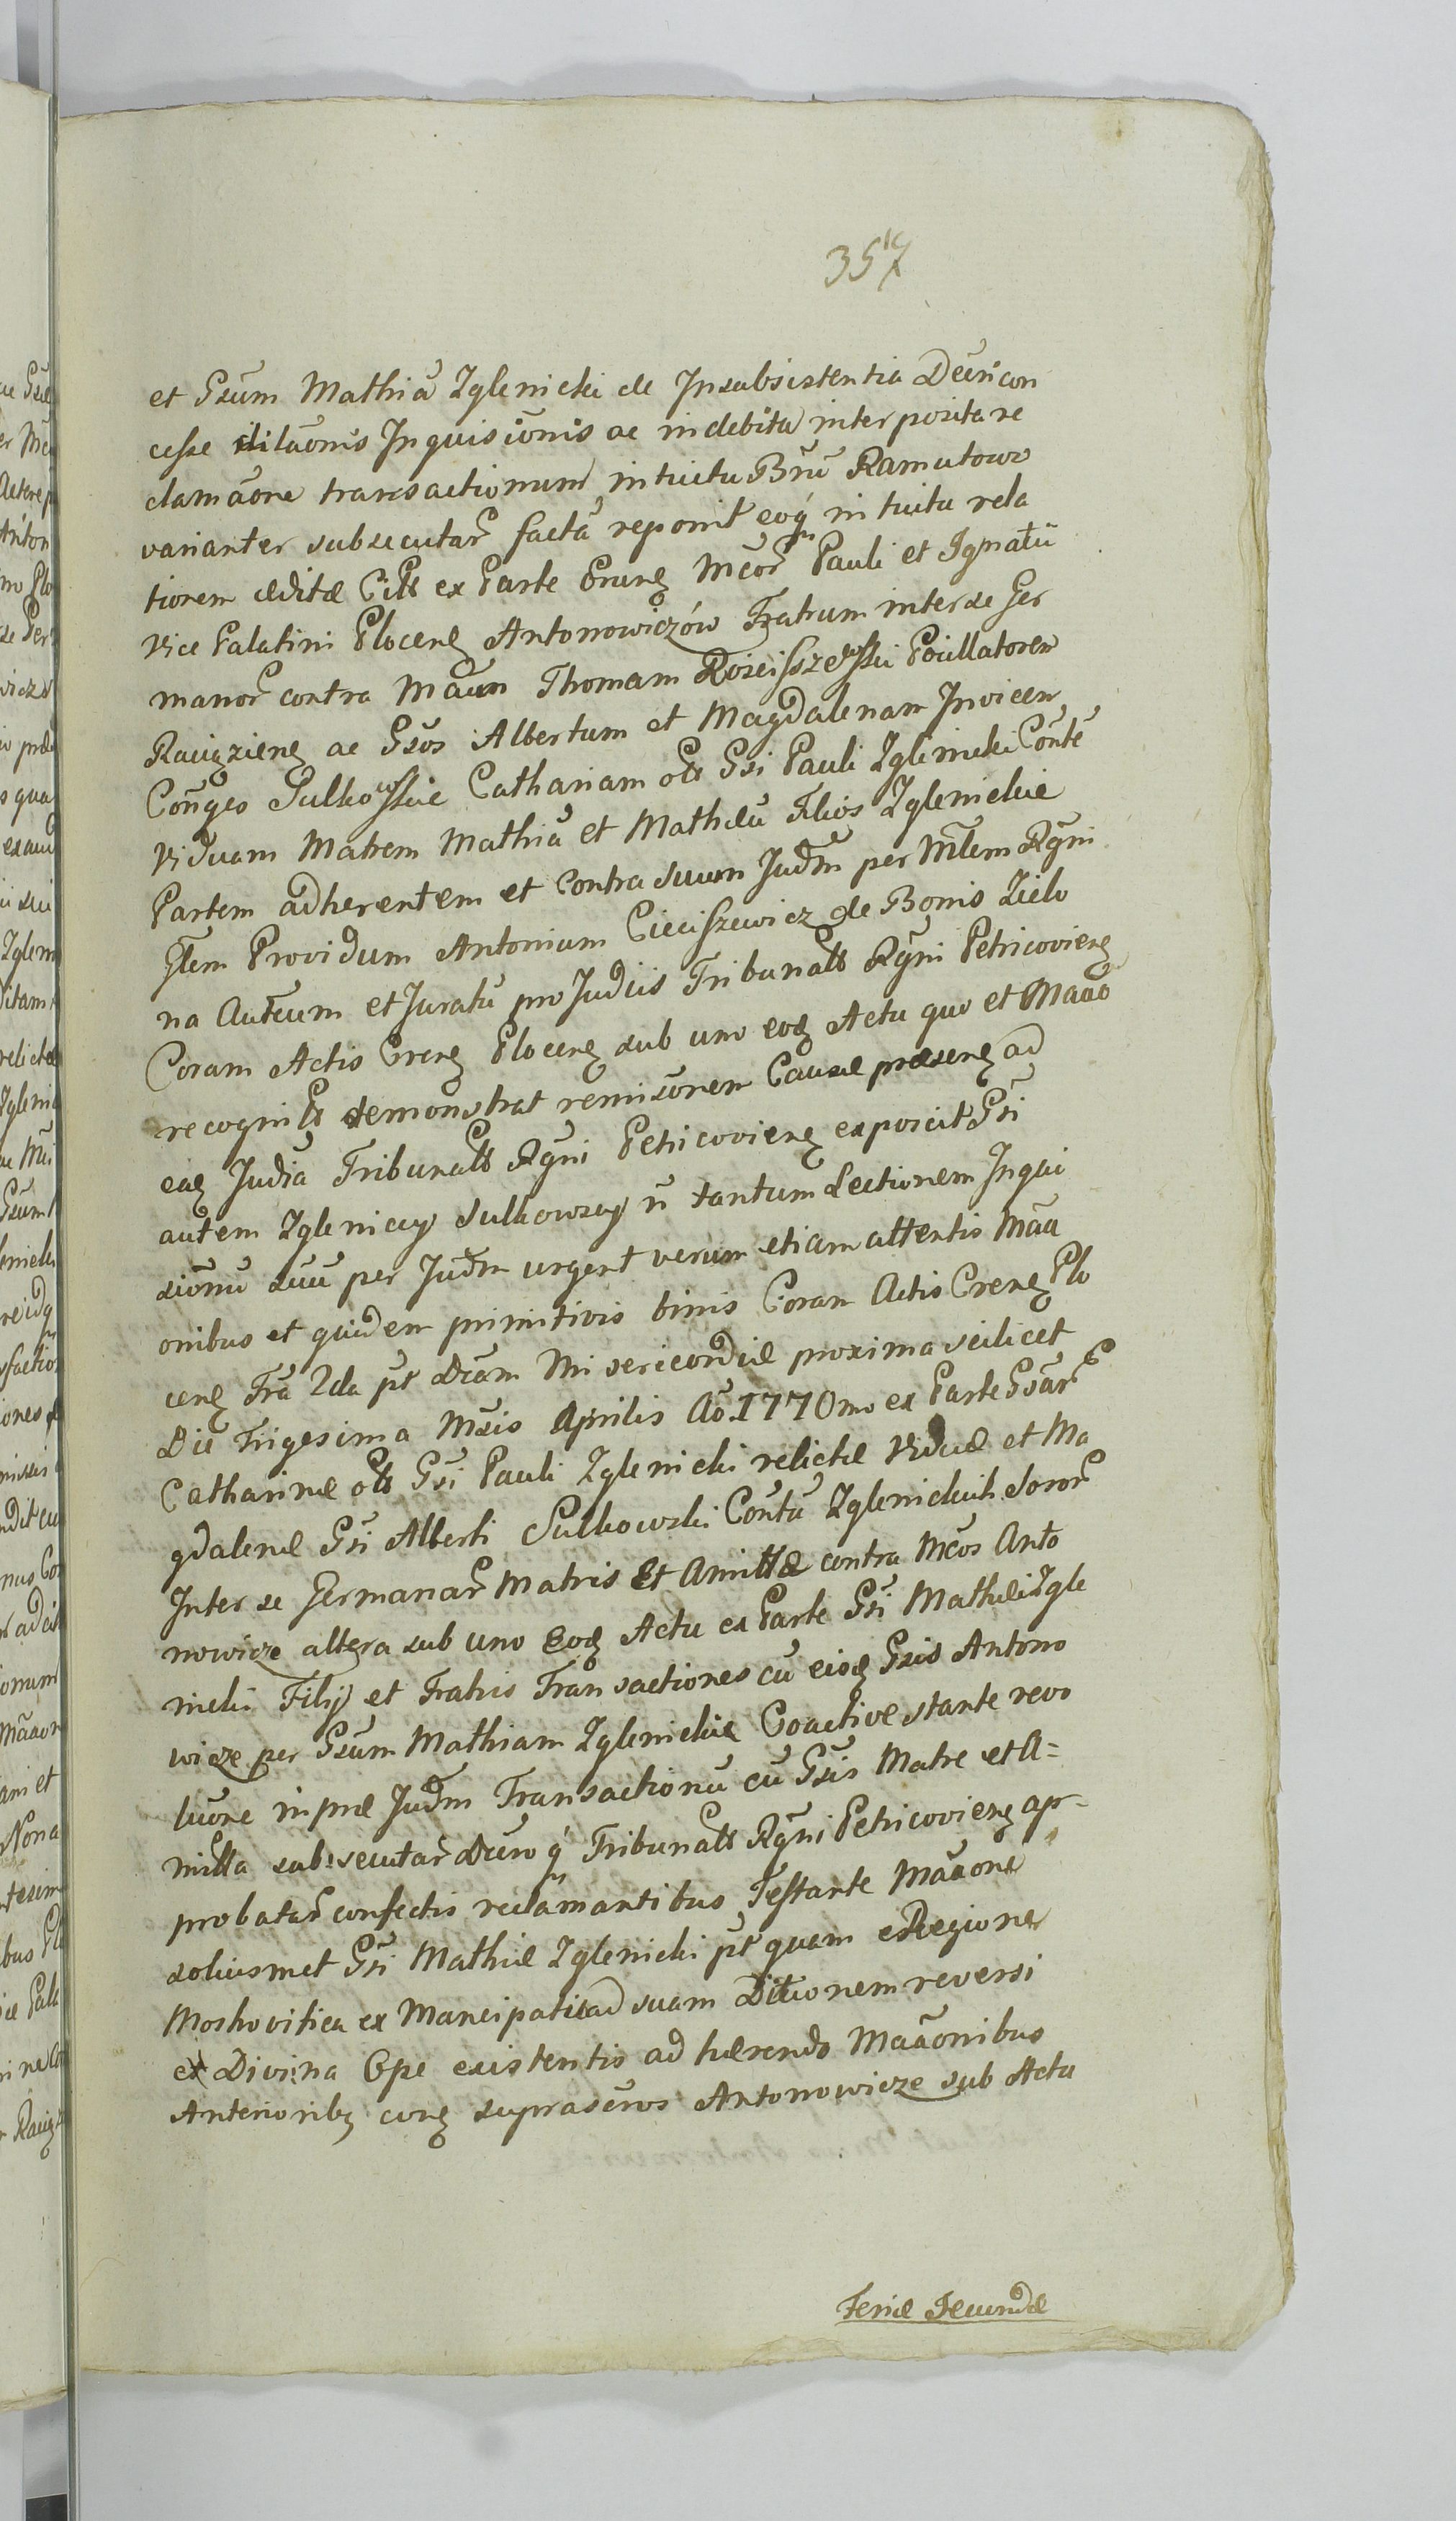 357
et Gsūm Mathiā Zglenicki de Insubsistentia Decīi con
cesse dilāonis Inquisiōnis ac indebita interposita re
clamāone transactionum intuitu Bnū Ramutowo
varianter subsecutar̃ factā reponit eoq́ intuitu rela
tionem æditæ Citt̃s ex Parte Grunȩ Mc̃or̃ Pauli et Ignatii
Vice Palatini Plocenȩ Antonowiczów Fratrum inter se Ger
manor̃ contra Mc̄um Thomam Rościszewski Pocillatorem
Raciązienȩ ac Gsos Albertum et Magdalenam Invicem
Coñges Sulkowskie Catharinam olt̃s Gsi Pauli Zglinicki Contē
Viduam Matrem Mathiā et Mathæū Filios Zglenickie
Partem adherentem et contra suum Jud̃m per Mt̃lem Rg̃ni
Gt̃lem Providum Antonium Cieciszewicz de Bonis Zielo
na Autēum et Juratū pro Judiis Tribunalt̃s Rg̃ni Petricovienȩ
Coram Actis Crenȩ Plocenȩ sub uno eoȩ Actu quo et Maāo
recognit̃s demonstrat remisōnem Causæ præsenȩ ad
eaȩ Judia Tribunalt̃s Rg̃ni Petricovienȩ exposcit Gsi
autem Zgleniccy Sulkowscy ñ tantum Lectionem Inqui
siōnū suū per Jud̃m urgent verum etiam attentis Māa
onibus et quidem primitivis binis Coram Actis Crenȩ Plo
cenȩ Frā 2da pt̃ Dc̄am Misericordiæ proxima scilicet
Die Trigesima Mēsis Aprilis Aō 1770mo ex Parte Gsar̃
Catharinæ olt̃s Gsi Pauli Zglenicki relictæ Viduæ et Ma
gdalenæ Gsi Alberti Sulkowski Contū Zglenickich Soror̃
Inter se Germanar̃ Matris Et Amittæ contra Mc̃os Anto
nowicze altera sub uno Eoȩ Actu ex Parte Gsi Mathæi Zgle
nicki Filij et Fratris Transactiones cū eisȩ Gsis Antono
wicze per Gsum Mathiam Zglenickie Coactive stante revo
luōne in præ Jud̃m Transactionū cū Gsis Matre et A=
mitta subsecutar̃ Decr̄o q́ Tribunalt̃s Rg̃ni Petricovienȩ ap-
probatar̃ confectis reclamantibus Testante Maāone
soliusmet Gsi Mathiæ Zglenicki pt̃ quam e Regione
Moskovitica ex Mancipatu ad suam Ditionem reversi
ex Divina Ope existentis ad hærendo Maāonibus
Anterioribȩ conȩ suprascr̄tos Antonowicze sub Actu
Feriæ Secundæ